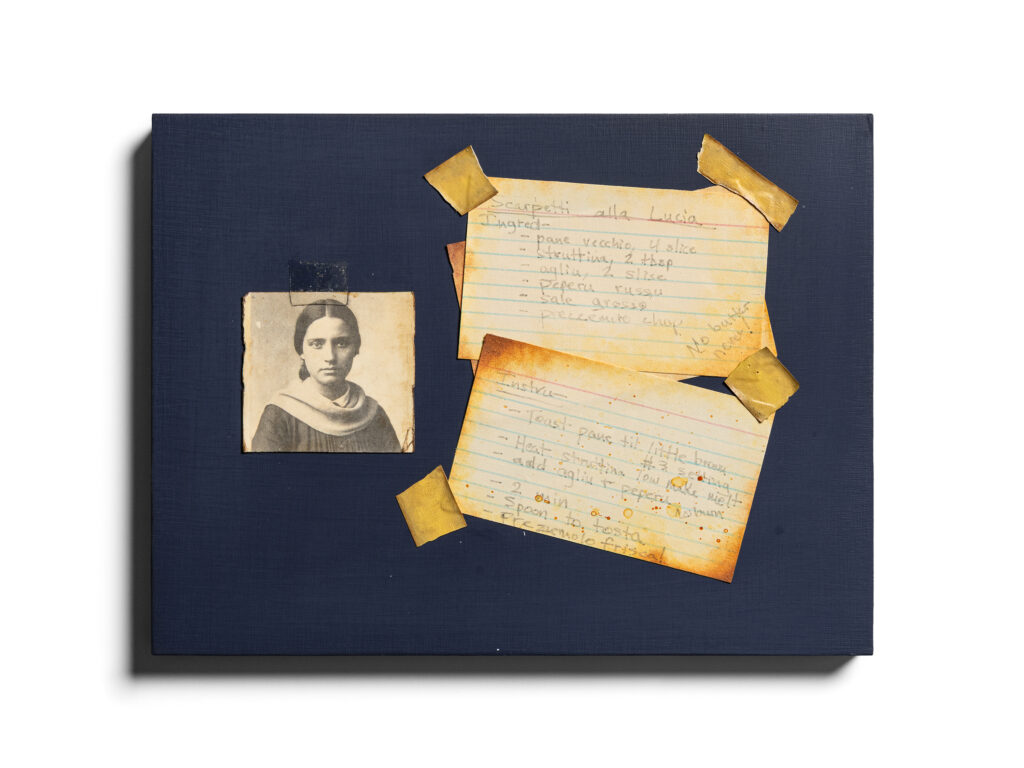 Scarpetti alla Lucia
Ingred-
- pane vecchio, 4 slice
- struttina, 2 tbsp
- agliu, 2 slice
- peperu russu
- sale grosso
- prezzemito chop
No butter
never!
Instru-
- Toast pane til little brown
#3 setting
- Heat struttina low make melt
- add agliu + peperu
- 2 min
- Spoon to tosta
- Prezzemolo frisca!